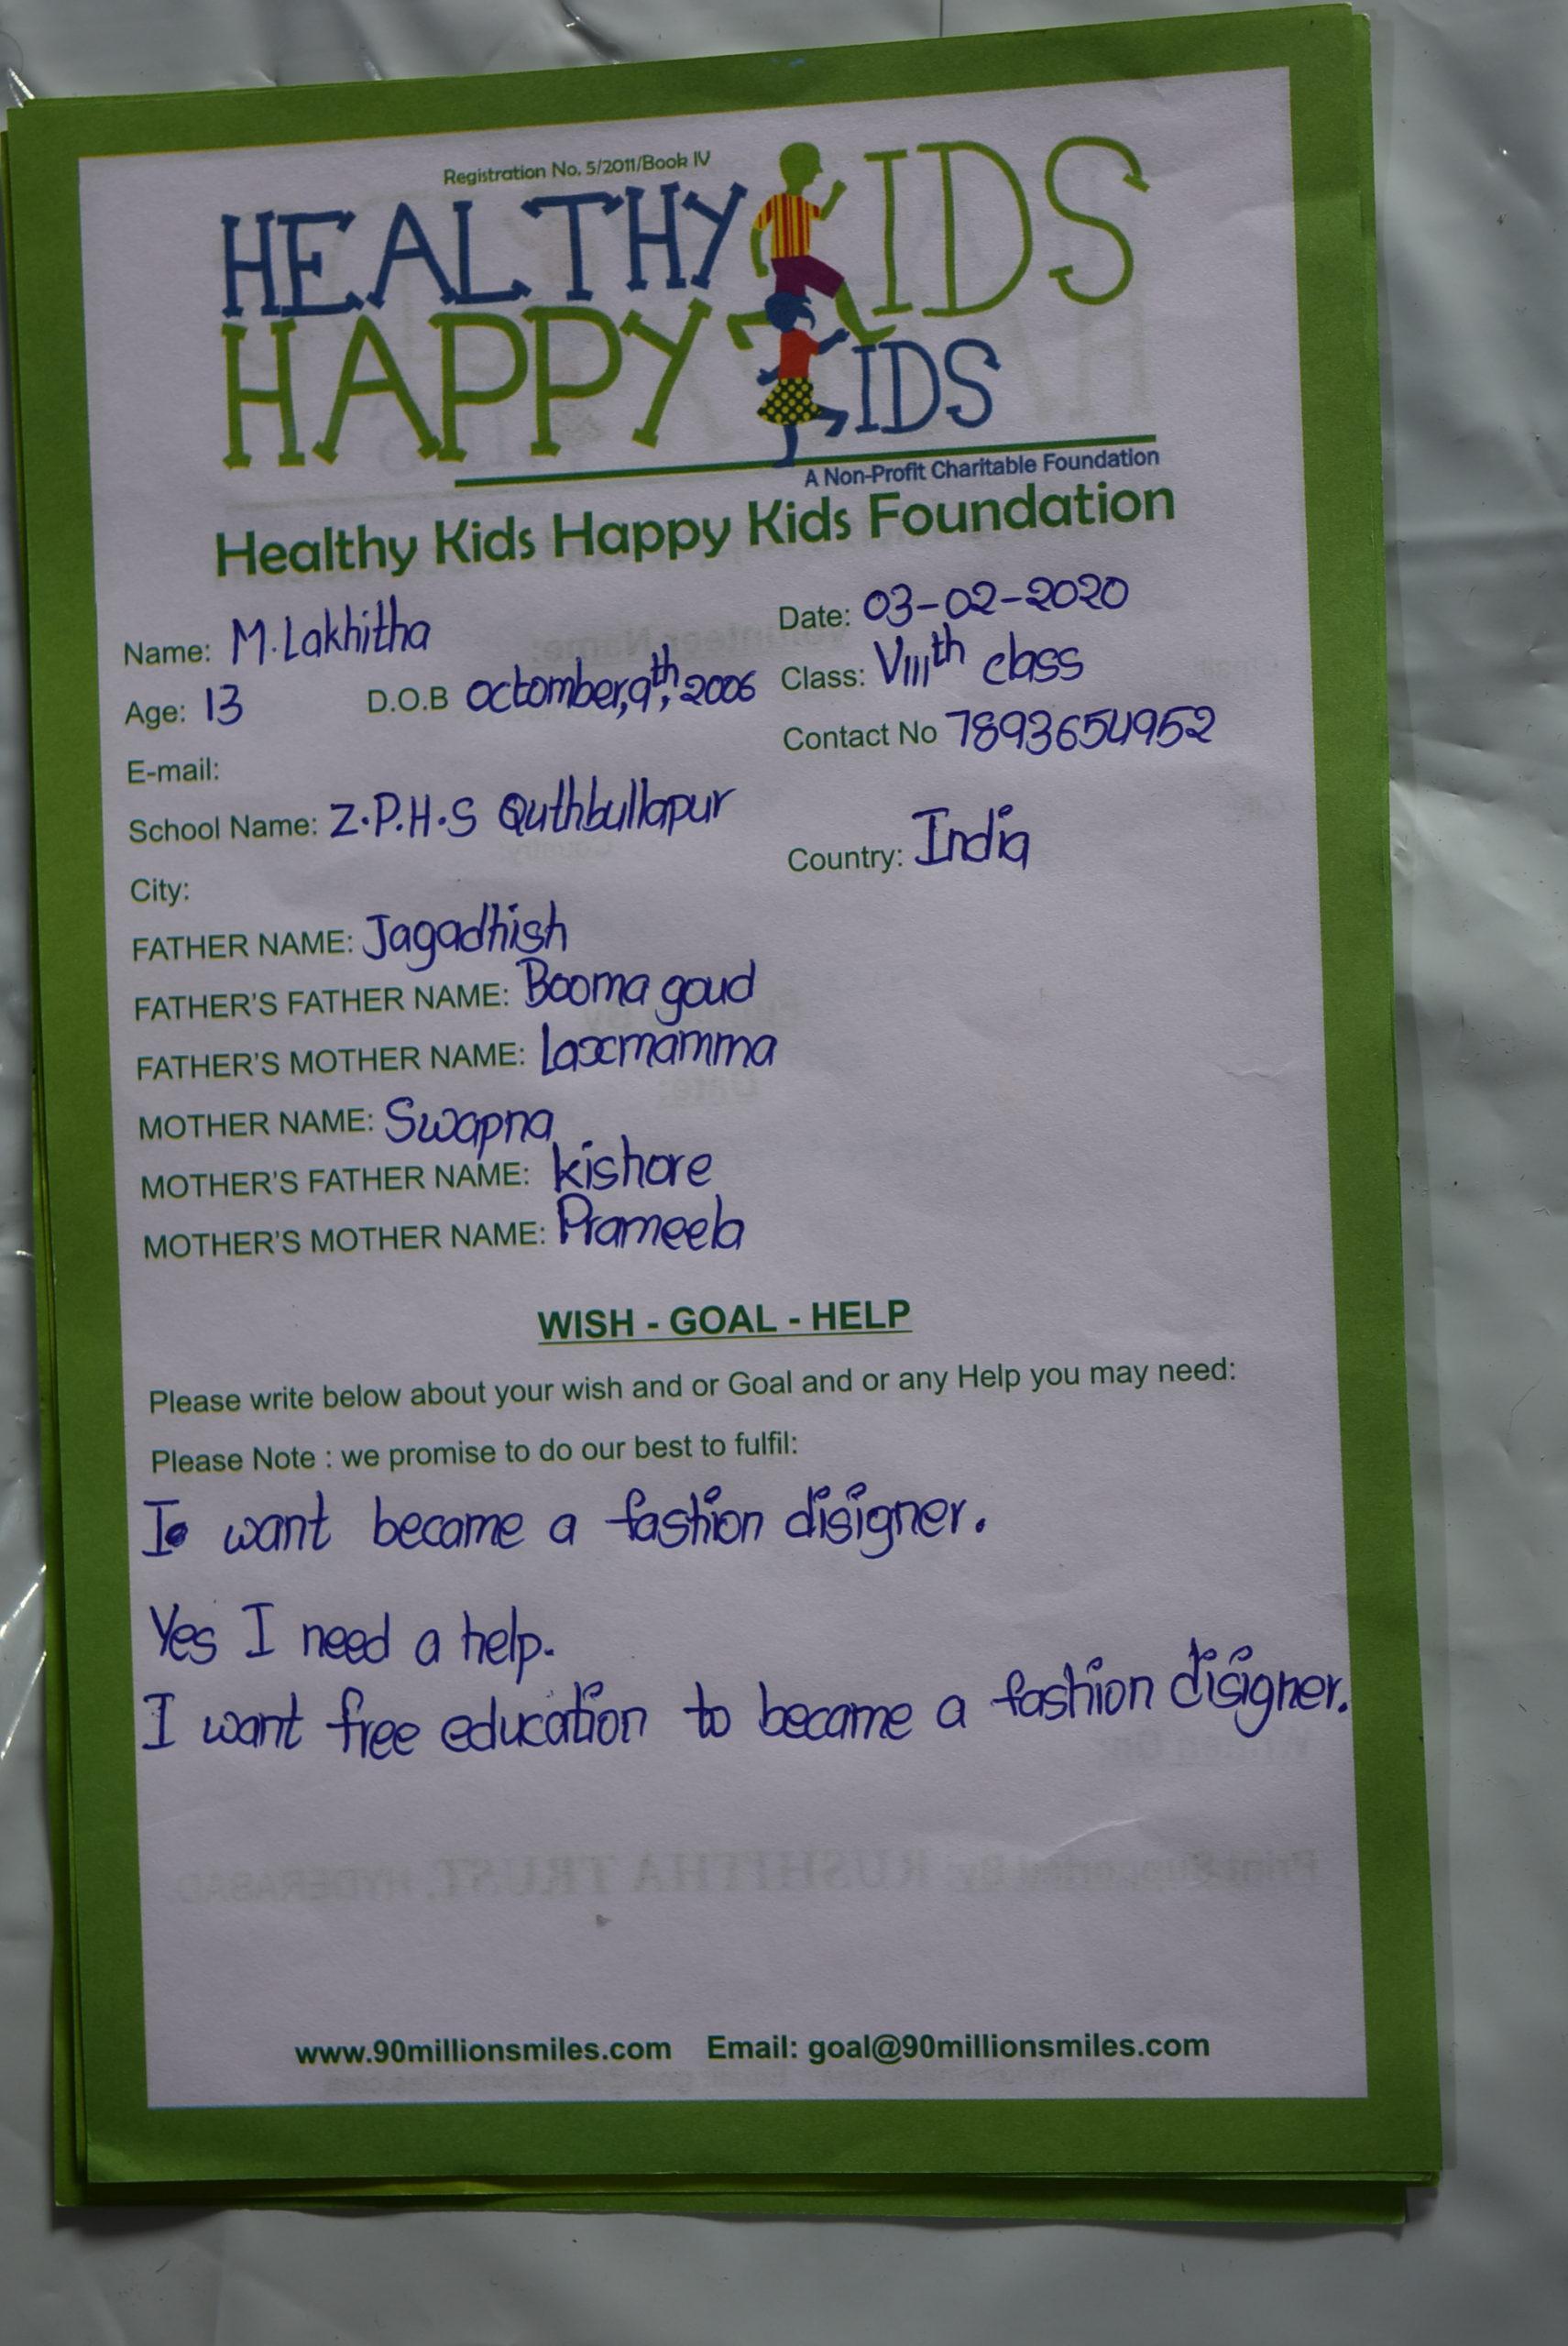 Registration No. 5/2011/Book IV
HEALTHY KIDS
HAPPY KIDS
A Non-Profit Charitable Foundation
Healthy Kids Happy Kids Foundation
Name: M. Lakhitha Date: 03-02-2020
Age: 13 D.O.B octomber,9th, 2006 Class: VIIIth class
E-mail: Contact No 7893654952
School Name: Z.P.H.S Quthbullapur
City: Country: India
FATHER NAME: Jagadhish
FATHER'S FATHER NAME: Booma goud
FATHER'S MOTHER NAME: Laxmamma
MOTHER NAME: Swapna
MOTHER'S FATHER NAME: kishore
MOTHER'S MOTHER NAME: Prameela
WISH - GOAL - HELP
Please write below about your wish and or Goal and or any Help you may need:
Please Note : we promise to do our best to fulfil:
I want became a fashion disigner.
Yes I need a help.
I want free education to became a fashion disigner.
www.90millionsmiles.com Email: goal@90millionsmiles.com